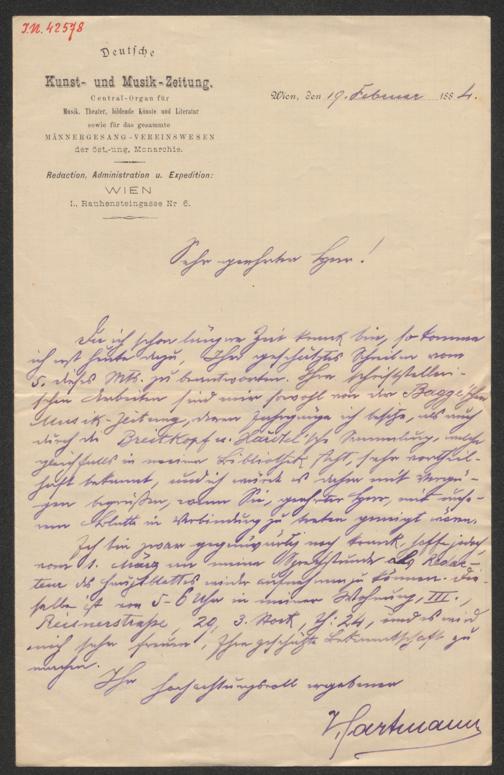 I.N. 42578
Deutsche
Kunst- und Musik-Zeitung.
Central-Organ für
Musik, Theater, bildende Künste und Literatur
sowie für das gesammte
MÄNNERGESANG-VEREINSWESEN
der öst.-ung. Monarchie.
Redaction, Administration u. Expedition:
WIEN
I., Rauhensteingasse Nr 6.
Wien, den 19. Februar 1884.
Sehr geehrter Herr!
Da ich schon längere Zeit krank bin, so komme
ich erst heute dazu, Ihr geschätztes Schreiben vom
5. dieses Mts. zu beantworten. Ihre schriftstelleri-
schen Arbeiten sind mir sowohl von der Bagge'schen
Musik-Zeitung, deren Jahrgänge ich besitze, als auch
durch die Breitkopf u. Härtel'sche Sammlung, welche
gleichfalls in meiner Bibliothek steht, sehr vortheil-
haft bekannt, und ich würde es daher mit Vergnü-
gen begrüßen, wenn Sie, geehrter Herr, mit unse-
rem Blatte in Verbindung zu treten geneigt wären.
Ich bin zwar gegenwärtig noch krank, hoffe jedoch
vom 1. März an meine Sprechstunde als Redac-
teur des Hauptblattes wieder aufnehmen zu können. Die-
selbe ist von 5-6 Uhr in meiner Wohnung, III.,
Reisnerstraße, 29, 3. Stock, Th: 24, und es wird
mich sehr freuen, Ihre geschätzte Bekanntschaft zu
machen.
Ihr hochachtungsvoll ergebener
Hartmann